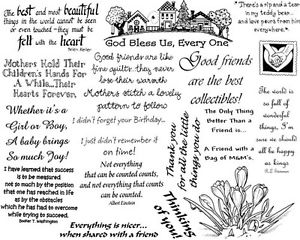 The best and most beautiful
things in the world cannot be seen
or even touched - they must be
felt with the heart
Helen Keller
God Bless Us, Every One
"There's a rip and a tear
in my teddy bear...
and love pours from him
everywhere."
Mothers Hold Their
Children's Hands For
A While...Their
Hearts Forever.
Good friends are like
fine quilts, they never
lose their warmth
Mothers stitch a lovely
pattern to follow
Good friends
are the best
collectibles!
I didn't forget your Birthday...
I just didn't remember it
on time!
The Only Thing
Better Than a
Friend is...
A Friend with a
Bag of M&M's.
The world is
so full of
things, I'm
sure we
should all
be happy
as kings
Whether it's a
Girl or Boy,
A baby brings
So much Joy!
Not everything
that can be counted counts,
and not everything that counts
can be counted.
Albert Einstein
Thank you
for all the little
things you do
I have learned that success
is to be measured
not so much by the position
that one has reached in life
as by the obstacles
which he has had to overcome
while trying to succeed.
Booker T. Washington
Thinking
of you!
Everything is nicer...
when shared with a friend